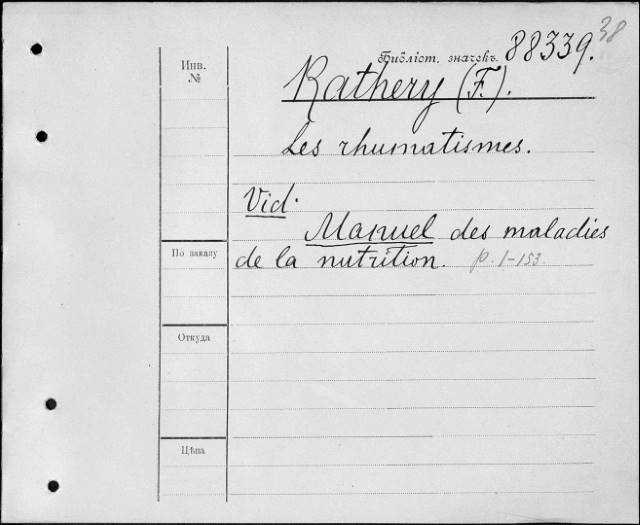 38
Библіот. значекъ. 88339.
Инв.
№
Rathery (F.).
Les rhumatismes.
Vid.
Manuel des maladies
По заказу
de la nutrition. p. 1-153.
Откуда
Цѣна